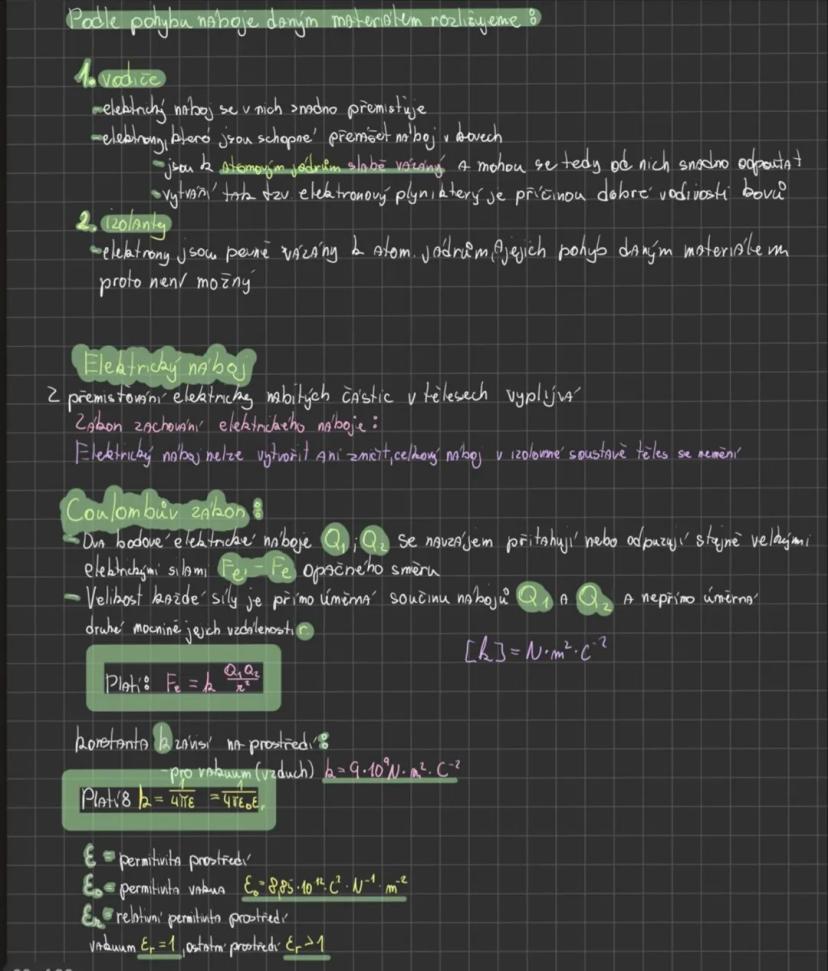 Podle pohybu náboje daným materiálem rozlišujeme:
1. vodiče
- elektrický náboj se v nich snadno přemisťuje
- elektrony, které jsou schopné přenášet náboj v kovech
• jsou k atomovým jádrům slabě vázány A mohou se tedy od nich snadno odpoutat
• vytváří tak tzv elektronový plyn který je příčinou dobré vodivosti kovů
2. izolanty
- elektrony jsou pevně vázány k atom. jádrům, A jejich pohyb daným materiálem
proto není možný
Elektrický náboj
Z přemisťování elektricky nabitých částic v tělesech vyplývá
Zákon zachování elektrického náboje:
Elektrický náboj nelze vytvořit ani zničit, celkový náboj v izolované soustavě těles se nemění
Coulombův zákon:
- Dva bodové elektrické náboje Q₁; Q₂ se navzájem přitahují nebo odpuzují stejně velkými
elektrickými silami Fe; -Fe opačného směru
- Velikost každé síly je přímo úměrná součinu nábojů Q₁ A Q₂ A nepřímo úměrná
druhé mocnině jejich vzdálenosti r
[k] = N·m²·C⁻²
Platí: Fe = k Q₁Q₂/r²
konstanta k závisí na prostředí:
- pro vakuum (vzduch) k = 9·10⁹ N·m²·C⁻²
Platí: k = 1/4πε = 1/4πε₀εᵣ
ε = permitivita prostředí
ε₀ = permitivita vakua ε₀ = 8,85·10⁻¹²·C²·N⁻¹·m⁻²
εᵣ = relativní permitivita prostředí
vakuum εᵣ = 1, ostatní prostředí εᵣ > 1